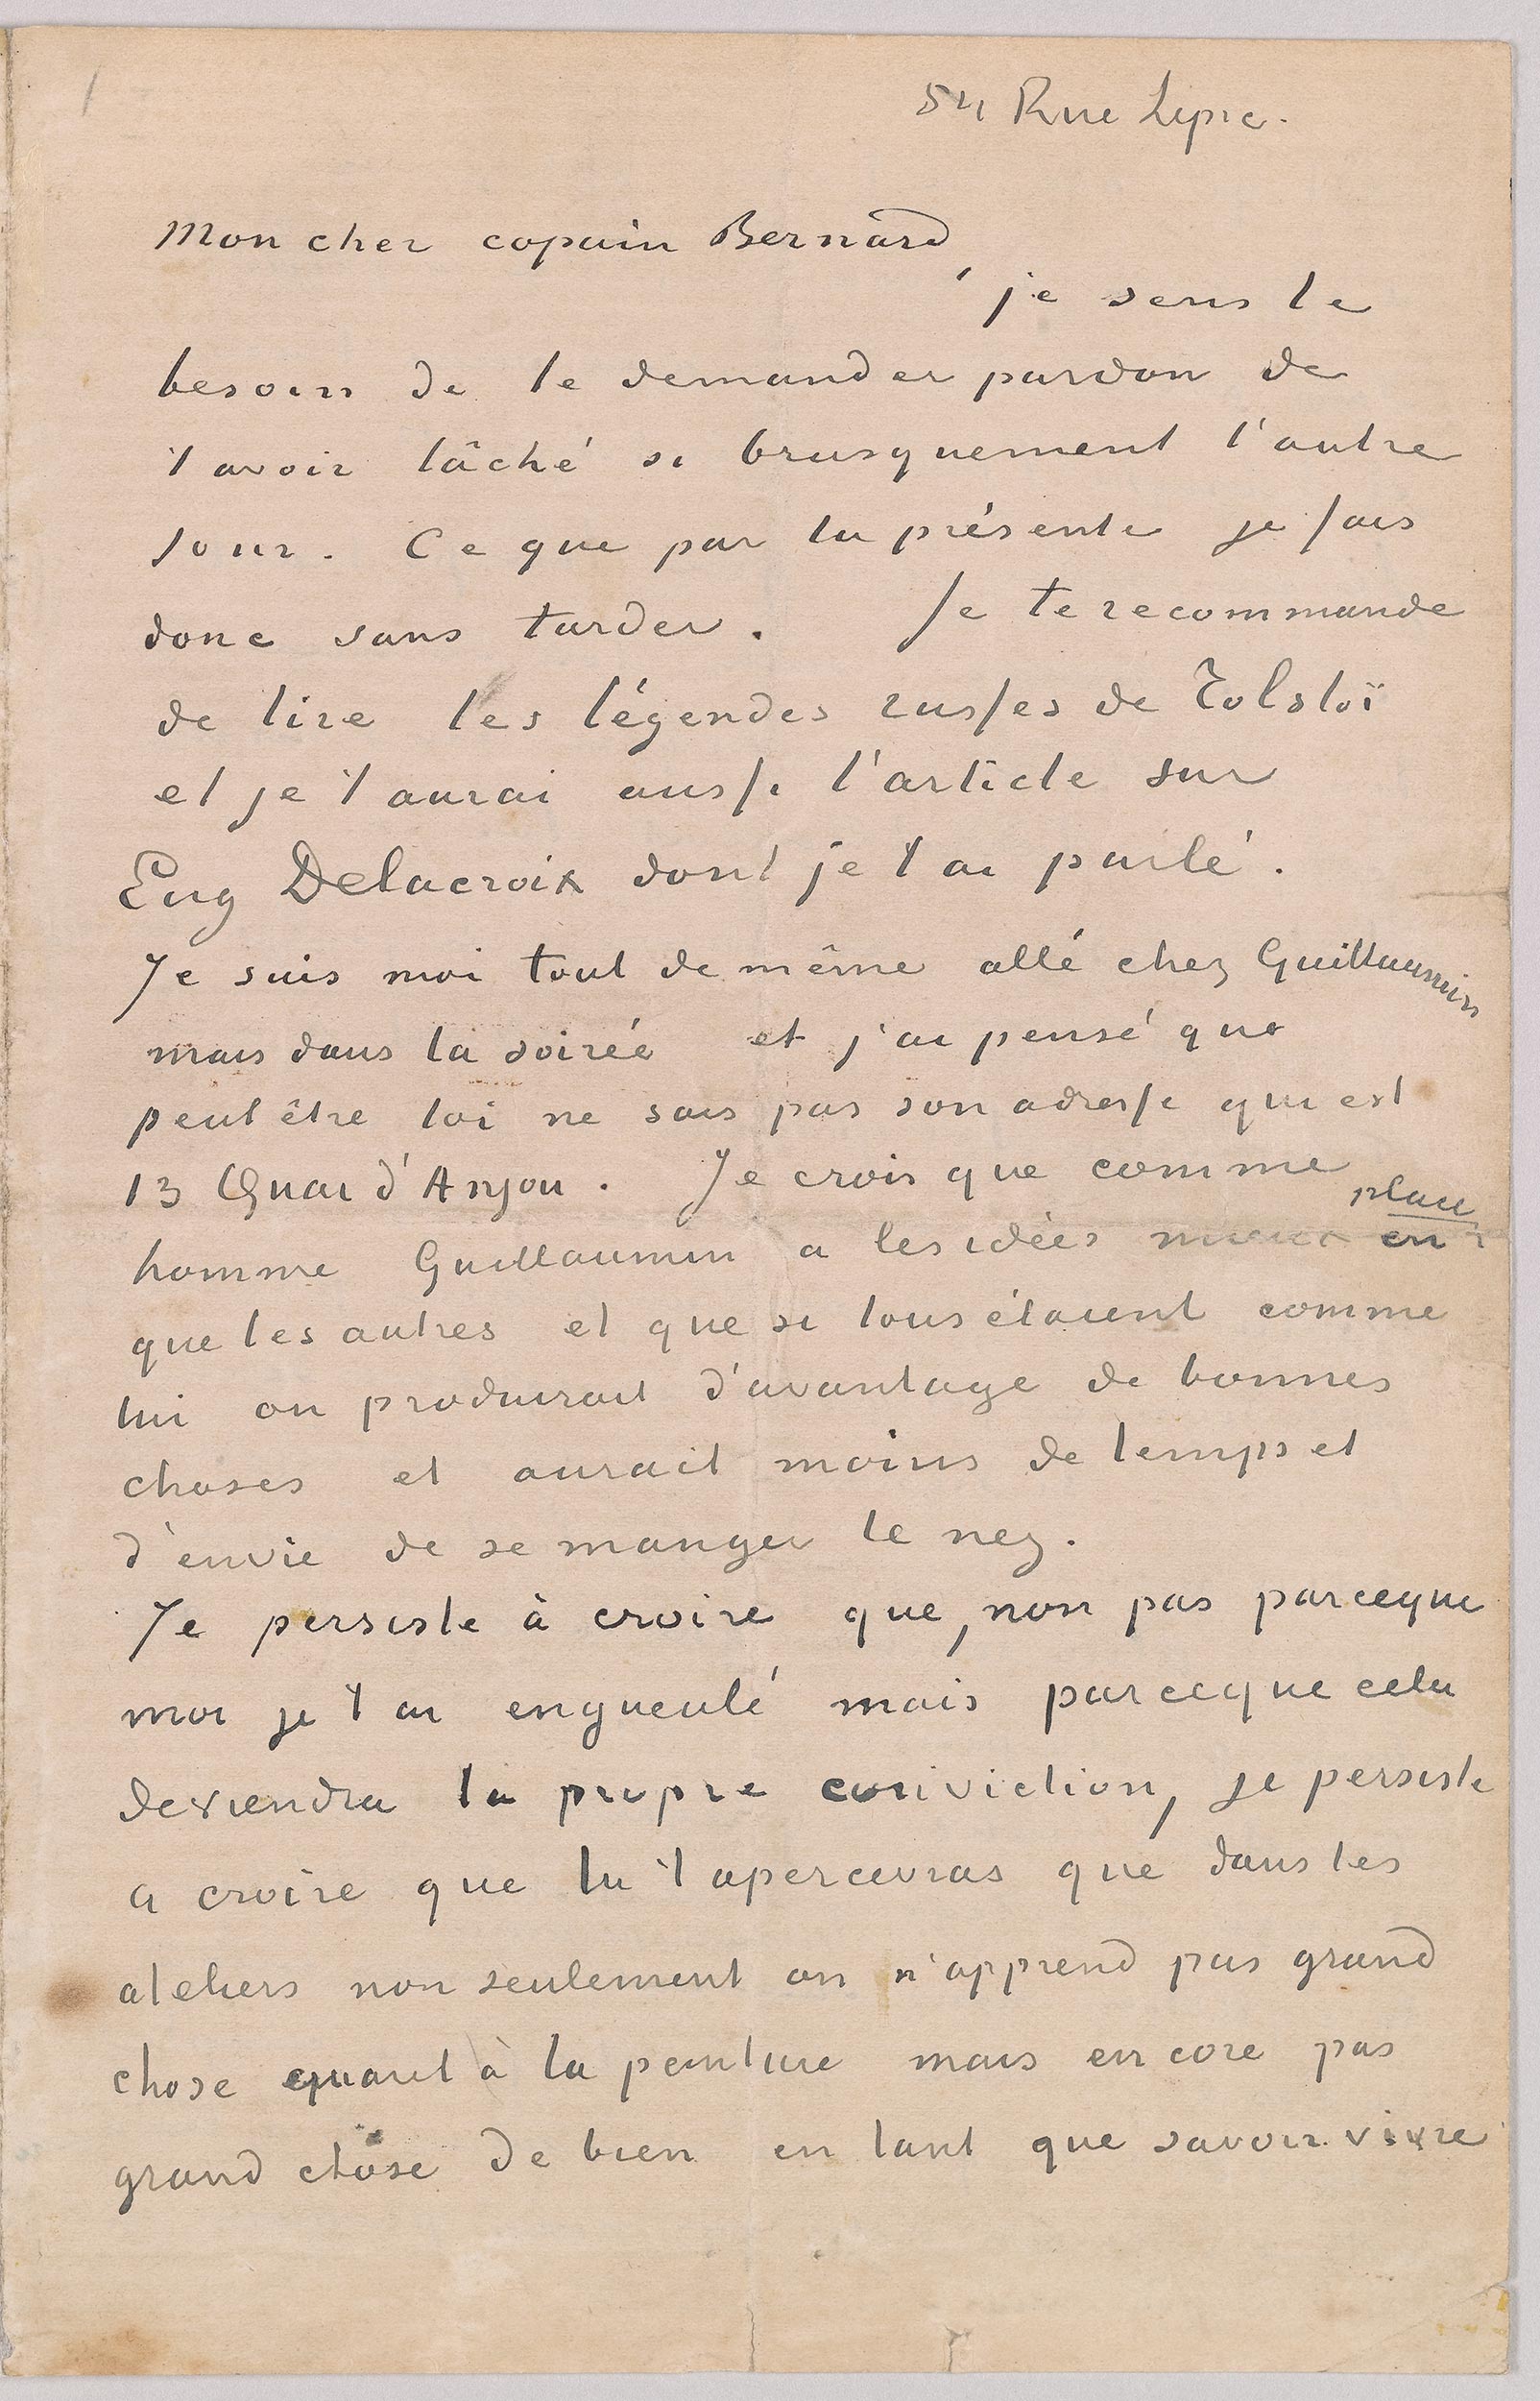 1
54 Rue Lepic.
Mon cher copain Bernard,
je sens le
besoin de te demander pardon de
t'avoir lâché si brusquement l'autre
jour. Ce que par la présente je fais
donc sans tarder. Je te recommande
de lire les légendes russes de Tolstoï
et je t'aurai aussi l'article sur
Eug Delacroix dont je t'ai parlé.
Je suis moi tout de même allé chez Guillaumin
mais dans la soirée et j'ai pensé que
peut être toi ne sais pas son adresse qui est
13 Quai d'Anjou. Je crois que comme
homme Guillaumin a les idées mieux en place
que les autres et que si tous étaient comme
lui on produirait d'avantage de bonnes
choses et aurait moins de temps et
d'envie de se manger le nez.
Je persiste à croire que, non pas parceque
moi je t'ai engueulé mais parceque cela
deviendra ta propre conviction, je persiste
a croire que tu t'apercevras que dans les
ateliers non seulement on n'apprend pas grand
chose quant à la peinture mais encore pas
grand chose de bien en tant que savoir vivre